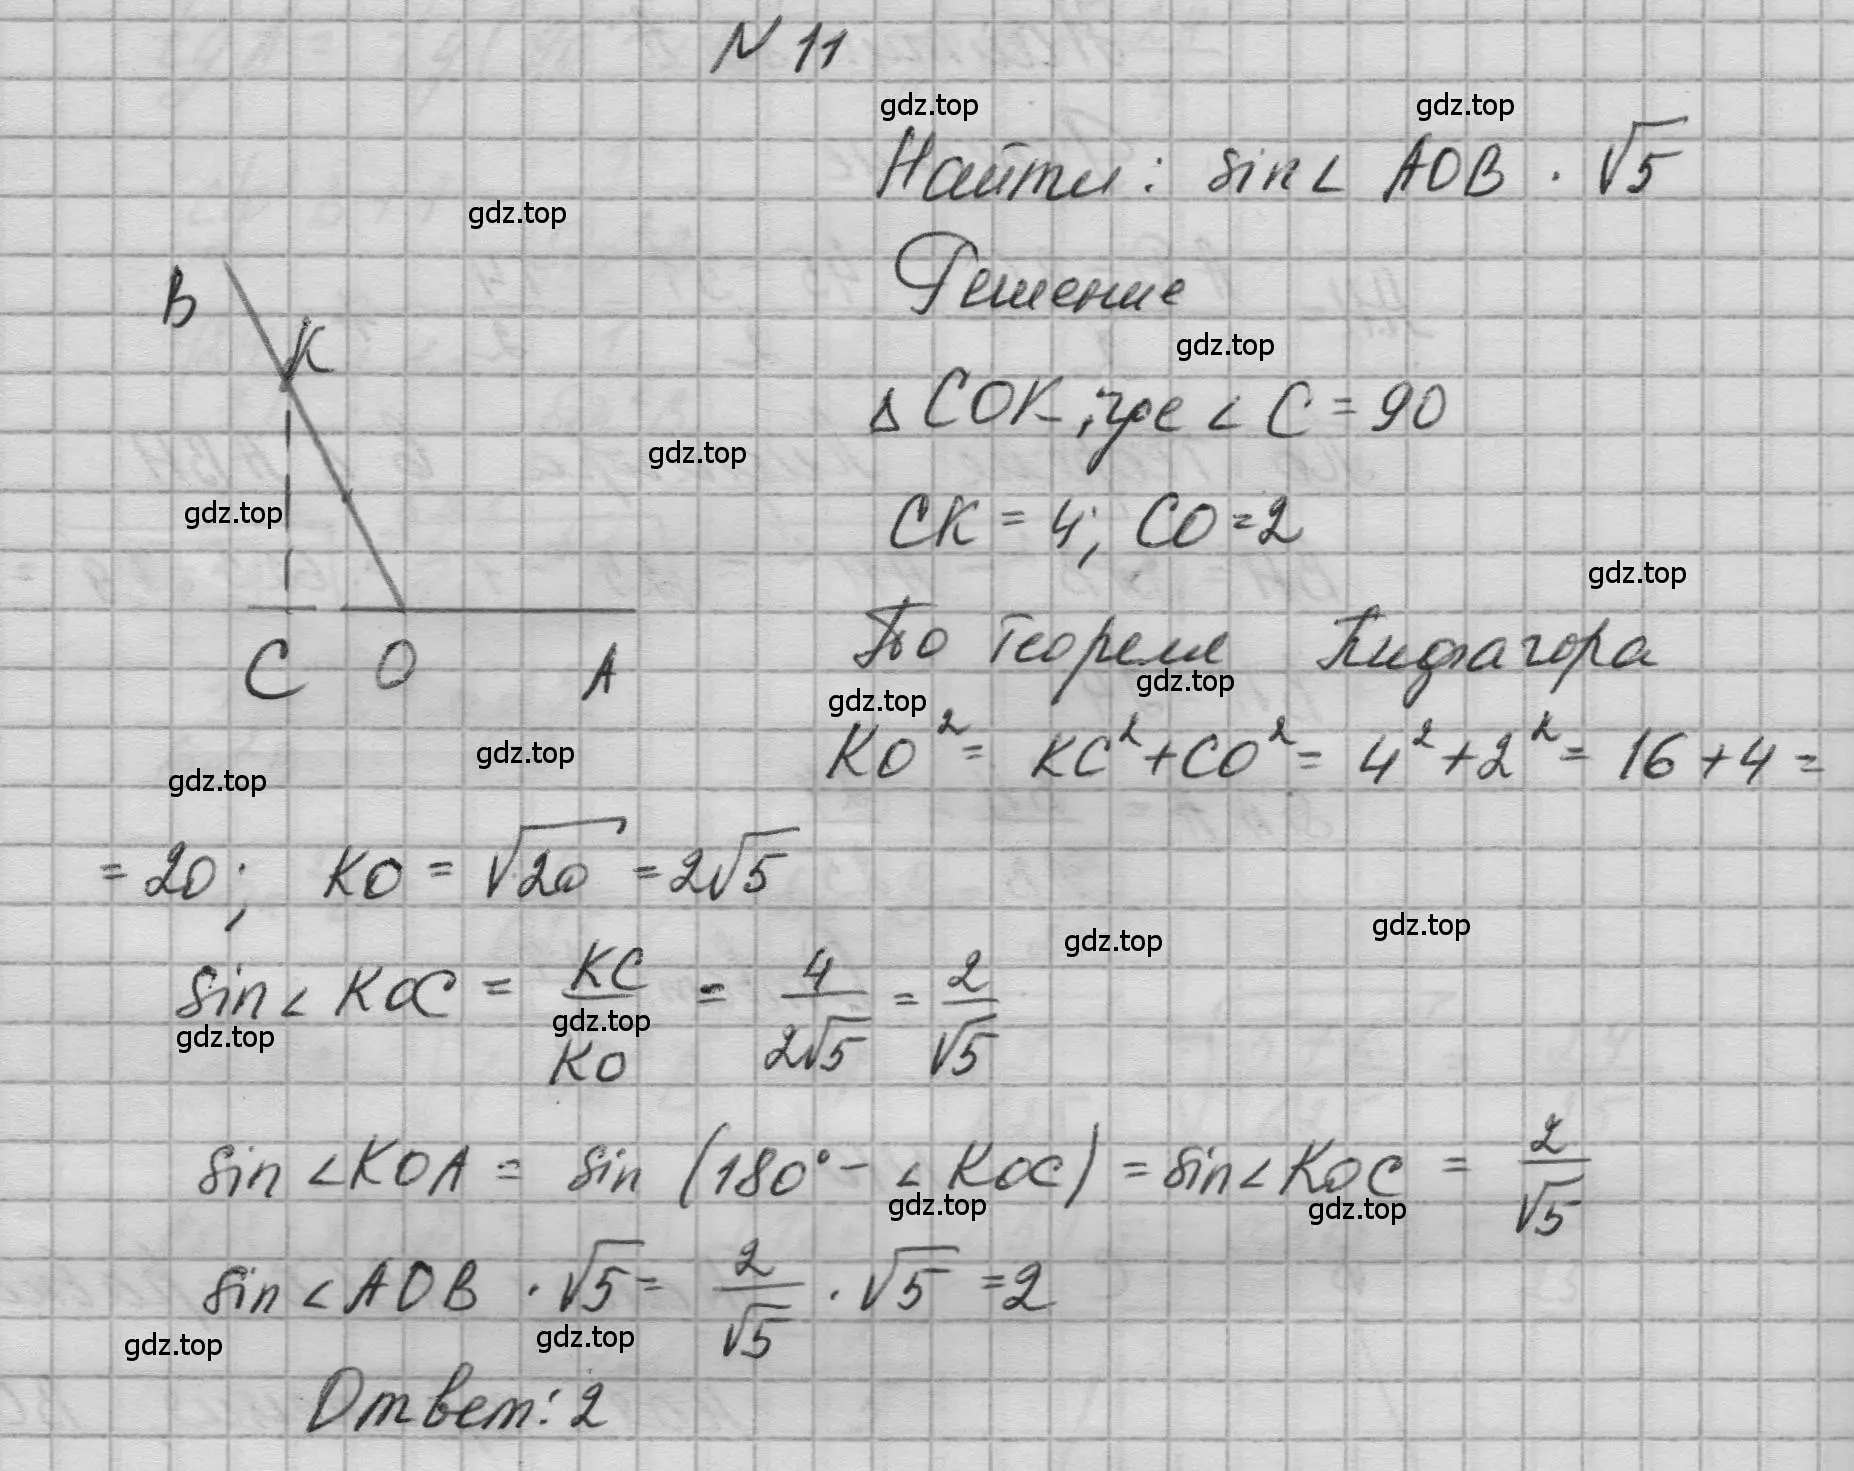 N 11
gdz.top gdz.top
Найти: sin∠ AOB · √5
gdz.top
Решение
B
K
gdz.top
Δ COK, где ∠ C = 90
gdz.top
gdz.top
CK = 4; CO = 2
gdz.top
C O A
По теореме Пифагора
gdz.top gdz.top
KO² = KC² + CO² = 4² + 2² = 16 + 4 =
gdz.top gdz.top
= 20; KO = √20 = 2√5
gdz.top gdz.top
sin∠ KOC = KC/KO = 4/2√5 = 2/√5
gdz.top gdz.top
sin ∠KOA = sin (180° - ∠ KOC) = sin∠ KOC = 2/√5
gdz.top gdz.top
sin ∠ AOB · √5 = 2/√5 · √5 = 2
gdz.top gdz.top
Ответ: 2